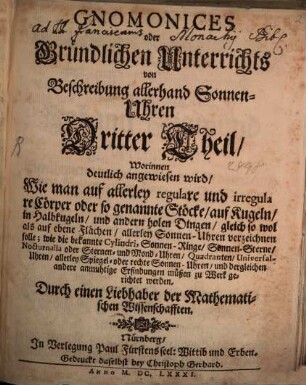 GNOMONICES
oder
Gründlichen Unterrichts
von
Beschreibung allerhand Sonnen-
Uhren
Dritter Theil/
Worinnen
deutlich angewiesen wird/
Wie man auf allerley regulare und irregula
re Cörper oder so genannte Stöcke/ auf Kugeln/
in Halbkugeln/ und andern holen Dingen/ gleich so wol
als auf ebene Flächen/ allerley Sonnen-Uhren verzeichnen
solle; wie die bekannte Cylindri, Sonnen-Ringe/ Sonnen-Sterne/
Nocturnalia oder Sternen- und Mond-Uhren/ Quadranten/ Universal-
Uhren/ allerley Spiegel- oder rechte Sonnen-Uhren/ und dergleichen
andere anmuhtige Erfindungen müßen zu Werk ge-
richtet werden.
Durch einen Liebhaber der Mathemati-
schen Wissenschafften.
Nürnberg/
In Verlegung Paul Fürstens seel: Wittib und Erben.
Gedruckt daselbst bey Christoph Gerhard.
ANNO M. DC. LXXXI.